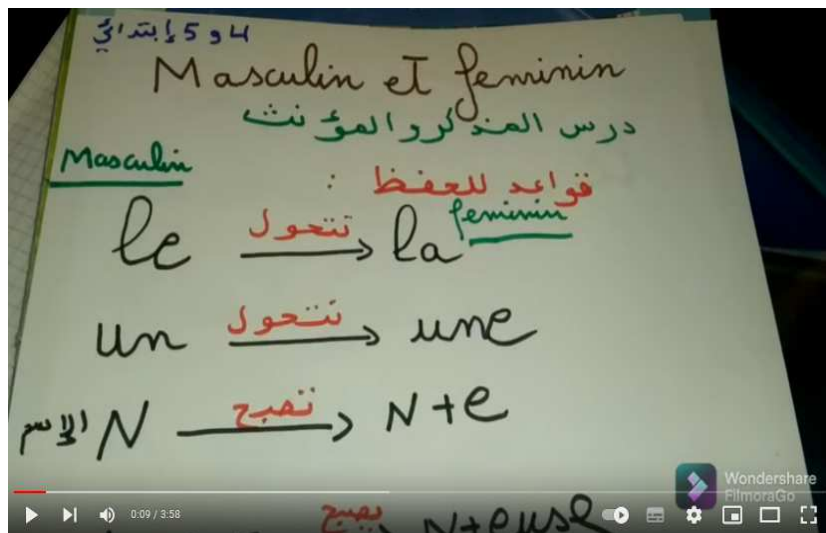 4 و 5 إبتدائي
Masculin et feminin
درس المذكر والمؤنث
Masculin
قواعد للحفظ :
feminin
le تتحول la
un تتحول une
الإسم N تصبح N+e
يصبح N+euse
Wondershare
FilmoraGo
0:09 / 3:58